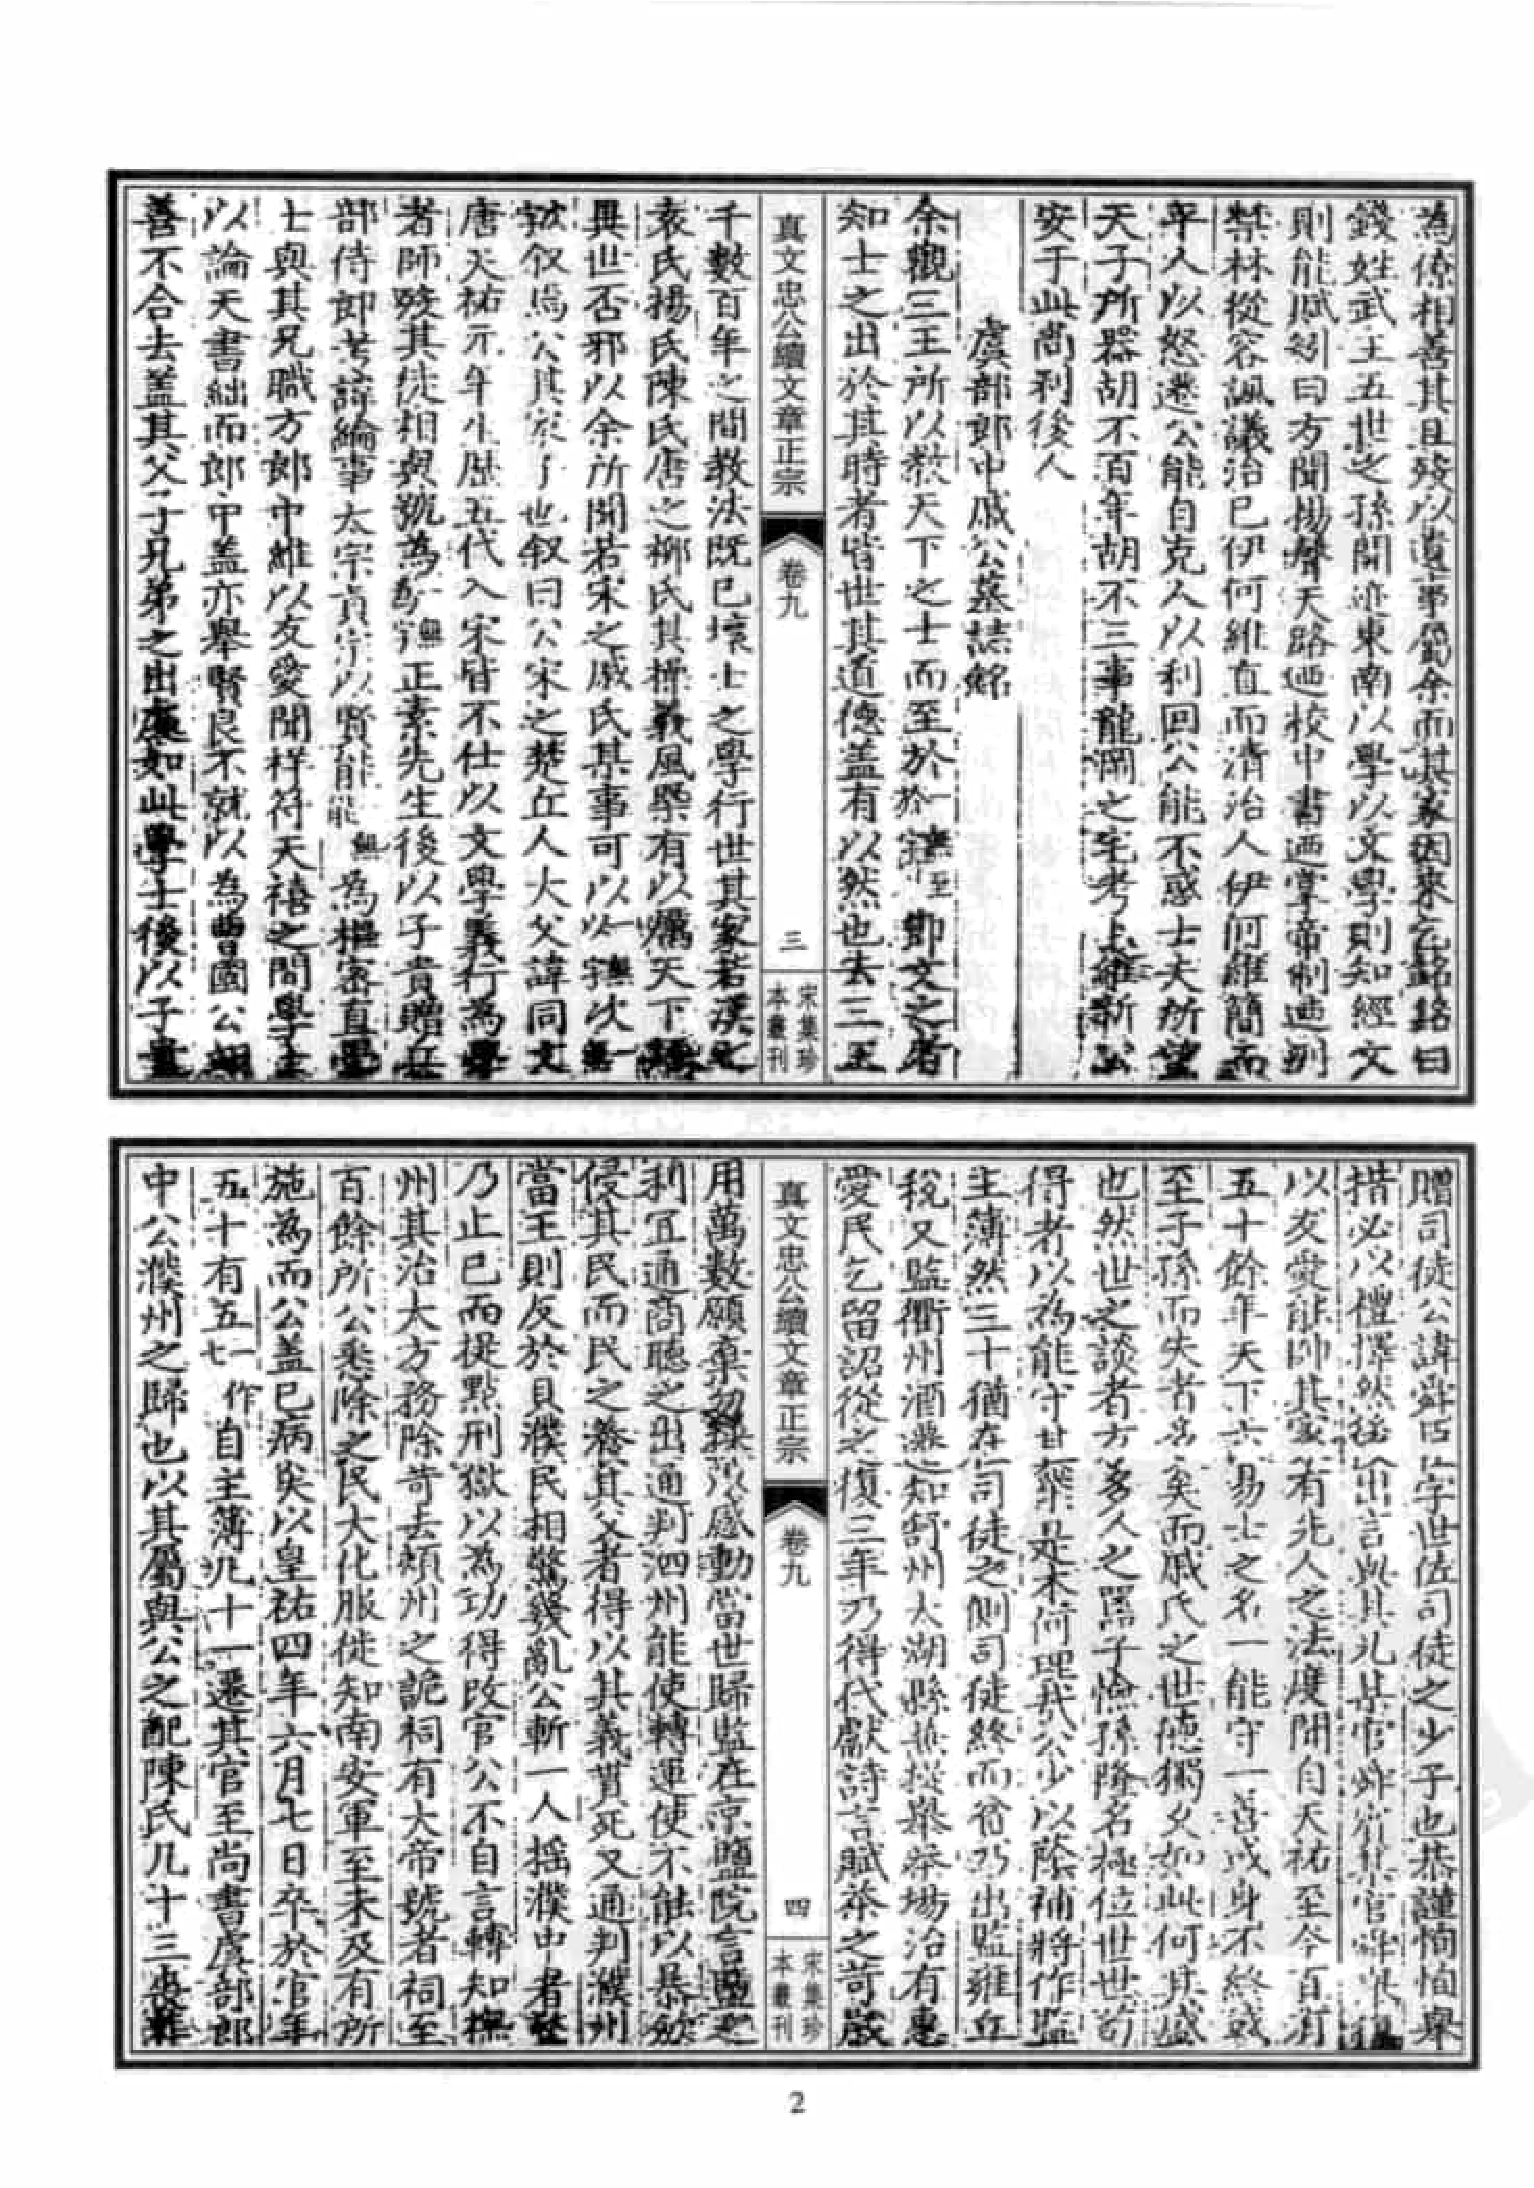 為僚相善其且歿以遺事屬余而其家因來乞銘銘曰
錢姓武王五世之孫開迹東南以學以文學則知經文
則能賦刻曰方聞揚聲天路迺校中書迺掌帝制迺列
禁林從容諷議治已伊何維直而清治人伊何維簡而
平人以怒遷公能自克人以利回公能不惑士大夫所望
天子所器胡不百年胡不三事龍岡之宅考卜維新公
安于此尚利後人
虞部郎中戚公墓誌銘
余觀三王所以教天下之士而至於一無至於字節文之者
知士之出於其時者皆世其道德盖有以然也去三王
真文忠公續文章正宗
卷九
三
宋集珍本叢刊
千數百年之間教法既已壞士之學行世其家若漢之
袁氏揚氏陳氏唐之柳氏其操義風槩有以厲天下矯
異世否邪以余所聞若宋之戚氏其事可以一無以字次一
叙馬公其家子也叙曰公宋之楚丘人大父諱同文
唐天祐元年生歷五代入宋皆不仕以文學義行為學
者師歿其徒相與號為正素先生後以子貴贈兵
部侍郎考諱綸事太宗真宗以賢能為樞密直學
士與其兄職方郎中維以友愛聞祥符天禧之間學士
以論天書絀而郎中盖亦舉賢良不就以為曹國公翊
善不合去盖其父子兄弟之出處如此學士後以子貴
贈司徒公諱舜臣字世佐司徒之少子也恭謹恂恂舉
措必以禮擇然後出言與其兄某官舜賓某官舜舉復
以友愛能帥其家有先人之法度聞自天祐至今百有
五十餘年天下六易士之名一能守一善或身不終或
至子孫而失者多矣而戚氏之世德獨久如此何其盛
也然世之談者方多人之詈子憸孫隆名極位世世苟
得者以為能守世業是本何理哉公少以蔭補將作監
主簿然三十猶在司徒之側司徒終而貧乃出監雍丘
稅又監衢州酒遷之知舒州太湖縣兼提舉茶場治有惠
愛民乞留詔從之復三年乃得代獻詩言賦茶之苛歲
真文忠公續文章正宗
卷九
四
宋集珍本叢刊
用萬數願棄勿採以感動當世歸監在京鹽院言鹽之
利宜通商聽之出通判泗州能使轉運使不能以暴斂
侵其民而民之養其父者得以其義貰死又通判濮州
當王則反於貝濮民相驚發亂公斬一人搖濮中者驚
乃止已而提點刑獄以為功得改官公不自言轉知撫
州其治大方務除苛去煩州之詭祠有大帝號者祠至
百餘所公悉除之民大化服徙知南安軍至未及有所
施為而公盖已病矣以皇祐四年六月七日卒於官年
五十有五一作七自主簿凡十一遷其官至尚書虞部郎
中公濮州之歸也以其屬與公之配陳氏凡十三喪葬
2